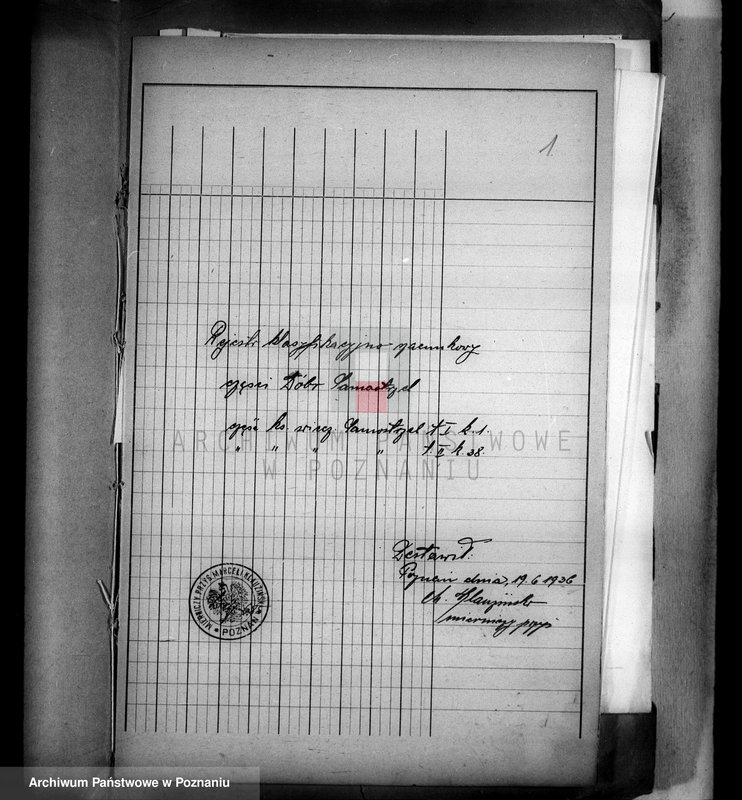 1
Rejestr klasyfikacyjno-szacunkowy
części Dóbr Samostrzel
część ks. wiecz. Samostrzel t I k. 1.
" " " " t. II k. 38.
ARCHIWUM PAŃSTWOWE
W POZNANIU
Zestawił:
Poznań dnia, 19.6.1936
mierniczy przys.
MIERNICZY PRZYS. MARCELI
* POZNAŃ *
Archiwum Państwowe w Poznaniu